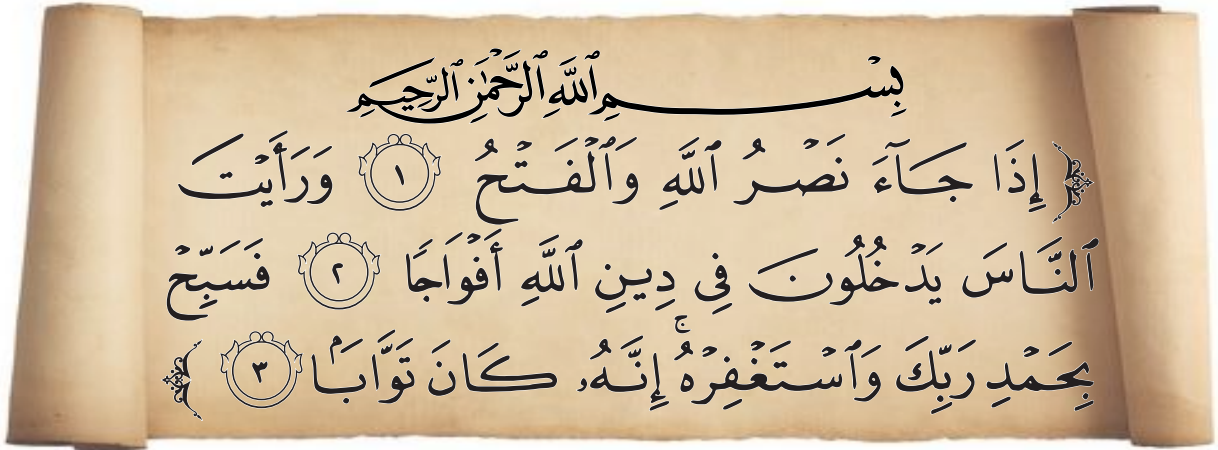 بِسْمِ ٱللَّهِ ٱلرَّحْمَٰنِ ٱلرَّحِيمِ
﴿ إِذَا جَآءَ نَصْرُ ٱللَّهِ وَٱلْفَتْحُ ١ وَرَأَيْتَ
ٱلنَّاسَ يَدْخُلُونَ فِي دِينِ ٱللَّهِ أَفْوَاجًا ٢ فَسَبِّحْ
بِحَمْدِ رَبِّكَ وَٱسْتَغْفِرْهُۚ إِنَّهُۥ كَانَ تَوَّابَۢا ٣ ﴾